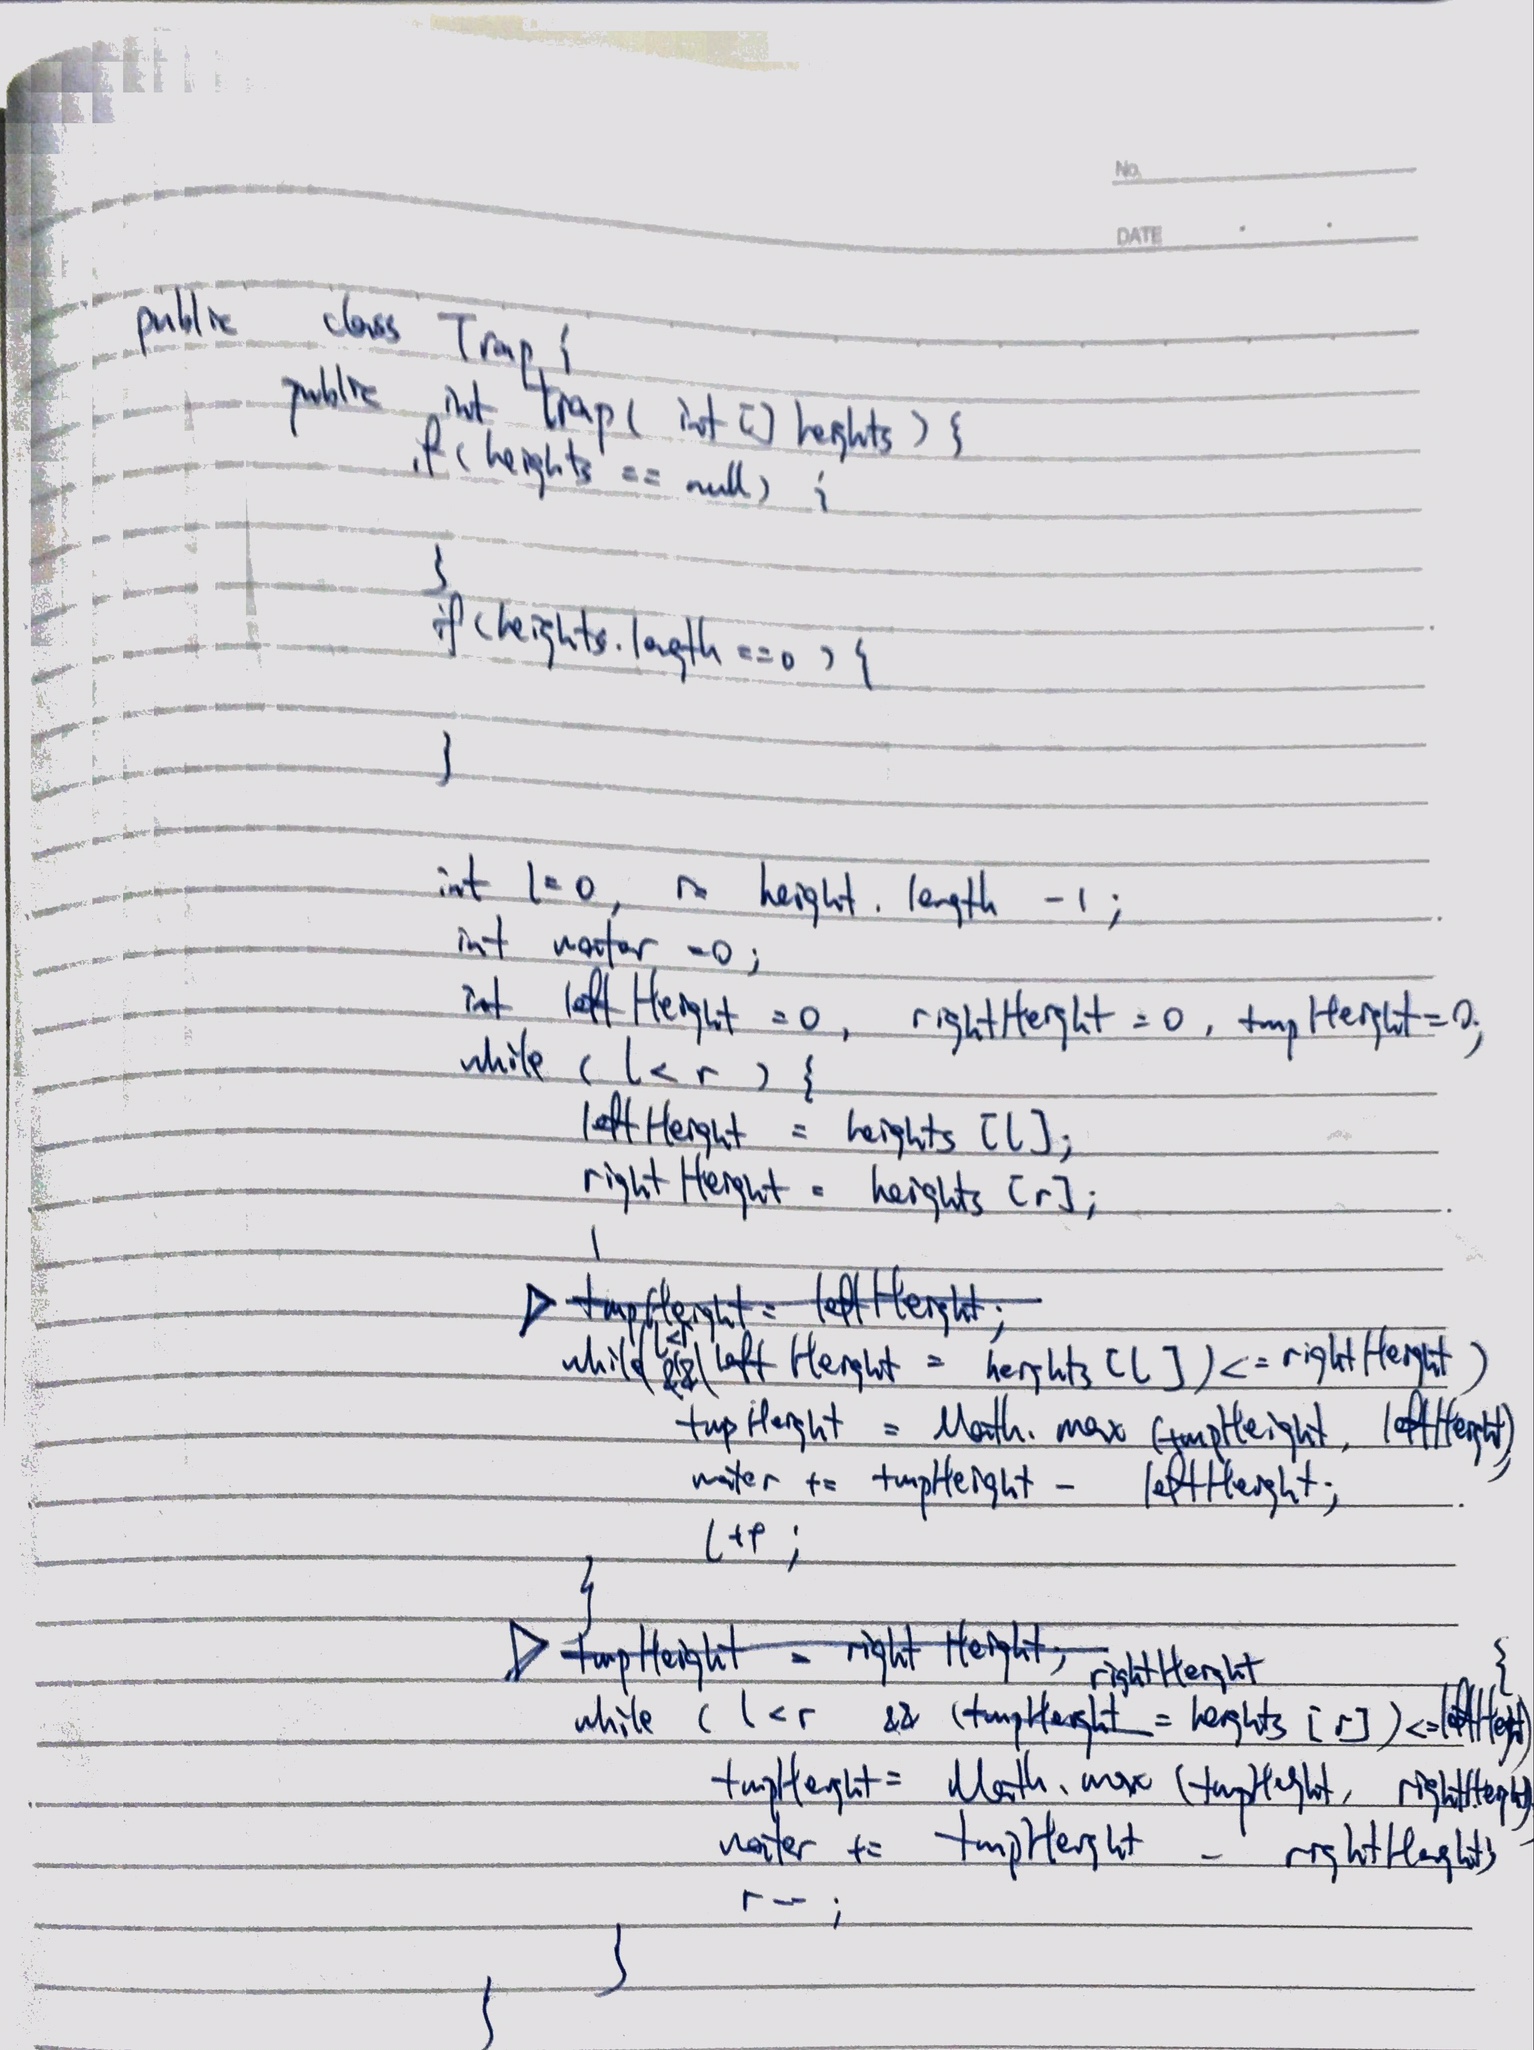 No.
DATE
public class Trap {
public int trap( int [] heights ) {
if ( heights == null) {
}
if (heights.length ==0 ) {
}
int l=0, r= height. length -1;
int water =0;
int leftHeight =0, rightHeight =0, tmpHeight=0;
while ( l< r ) {
leftHeight = heights [l];
rightHeight = heights [r];
tmpHeight = leftHeight;
while( l<r && (leftHeight = heights [l]) <= rightHeight )
tmpHeight = Math. max (tmpHeight, leftHeight);
water += tmpHeight - leftHeight;
l++ ;
}
tmpHeight = rightHeight;
rightHeight {
while ( l<r && (tmpHeight = heights [r]) <=leftHeight)
tmpHeight= Math. max (tmpHeight, rightHeight);
water += tmpHeight - rightHeight;
r-- ;
}
}